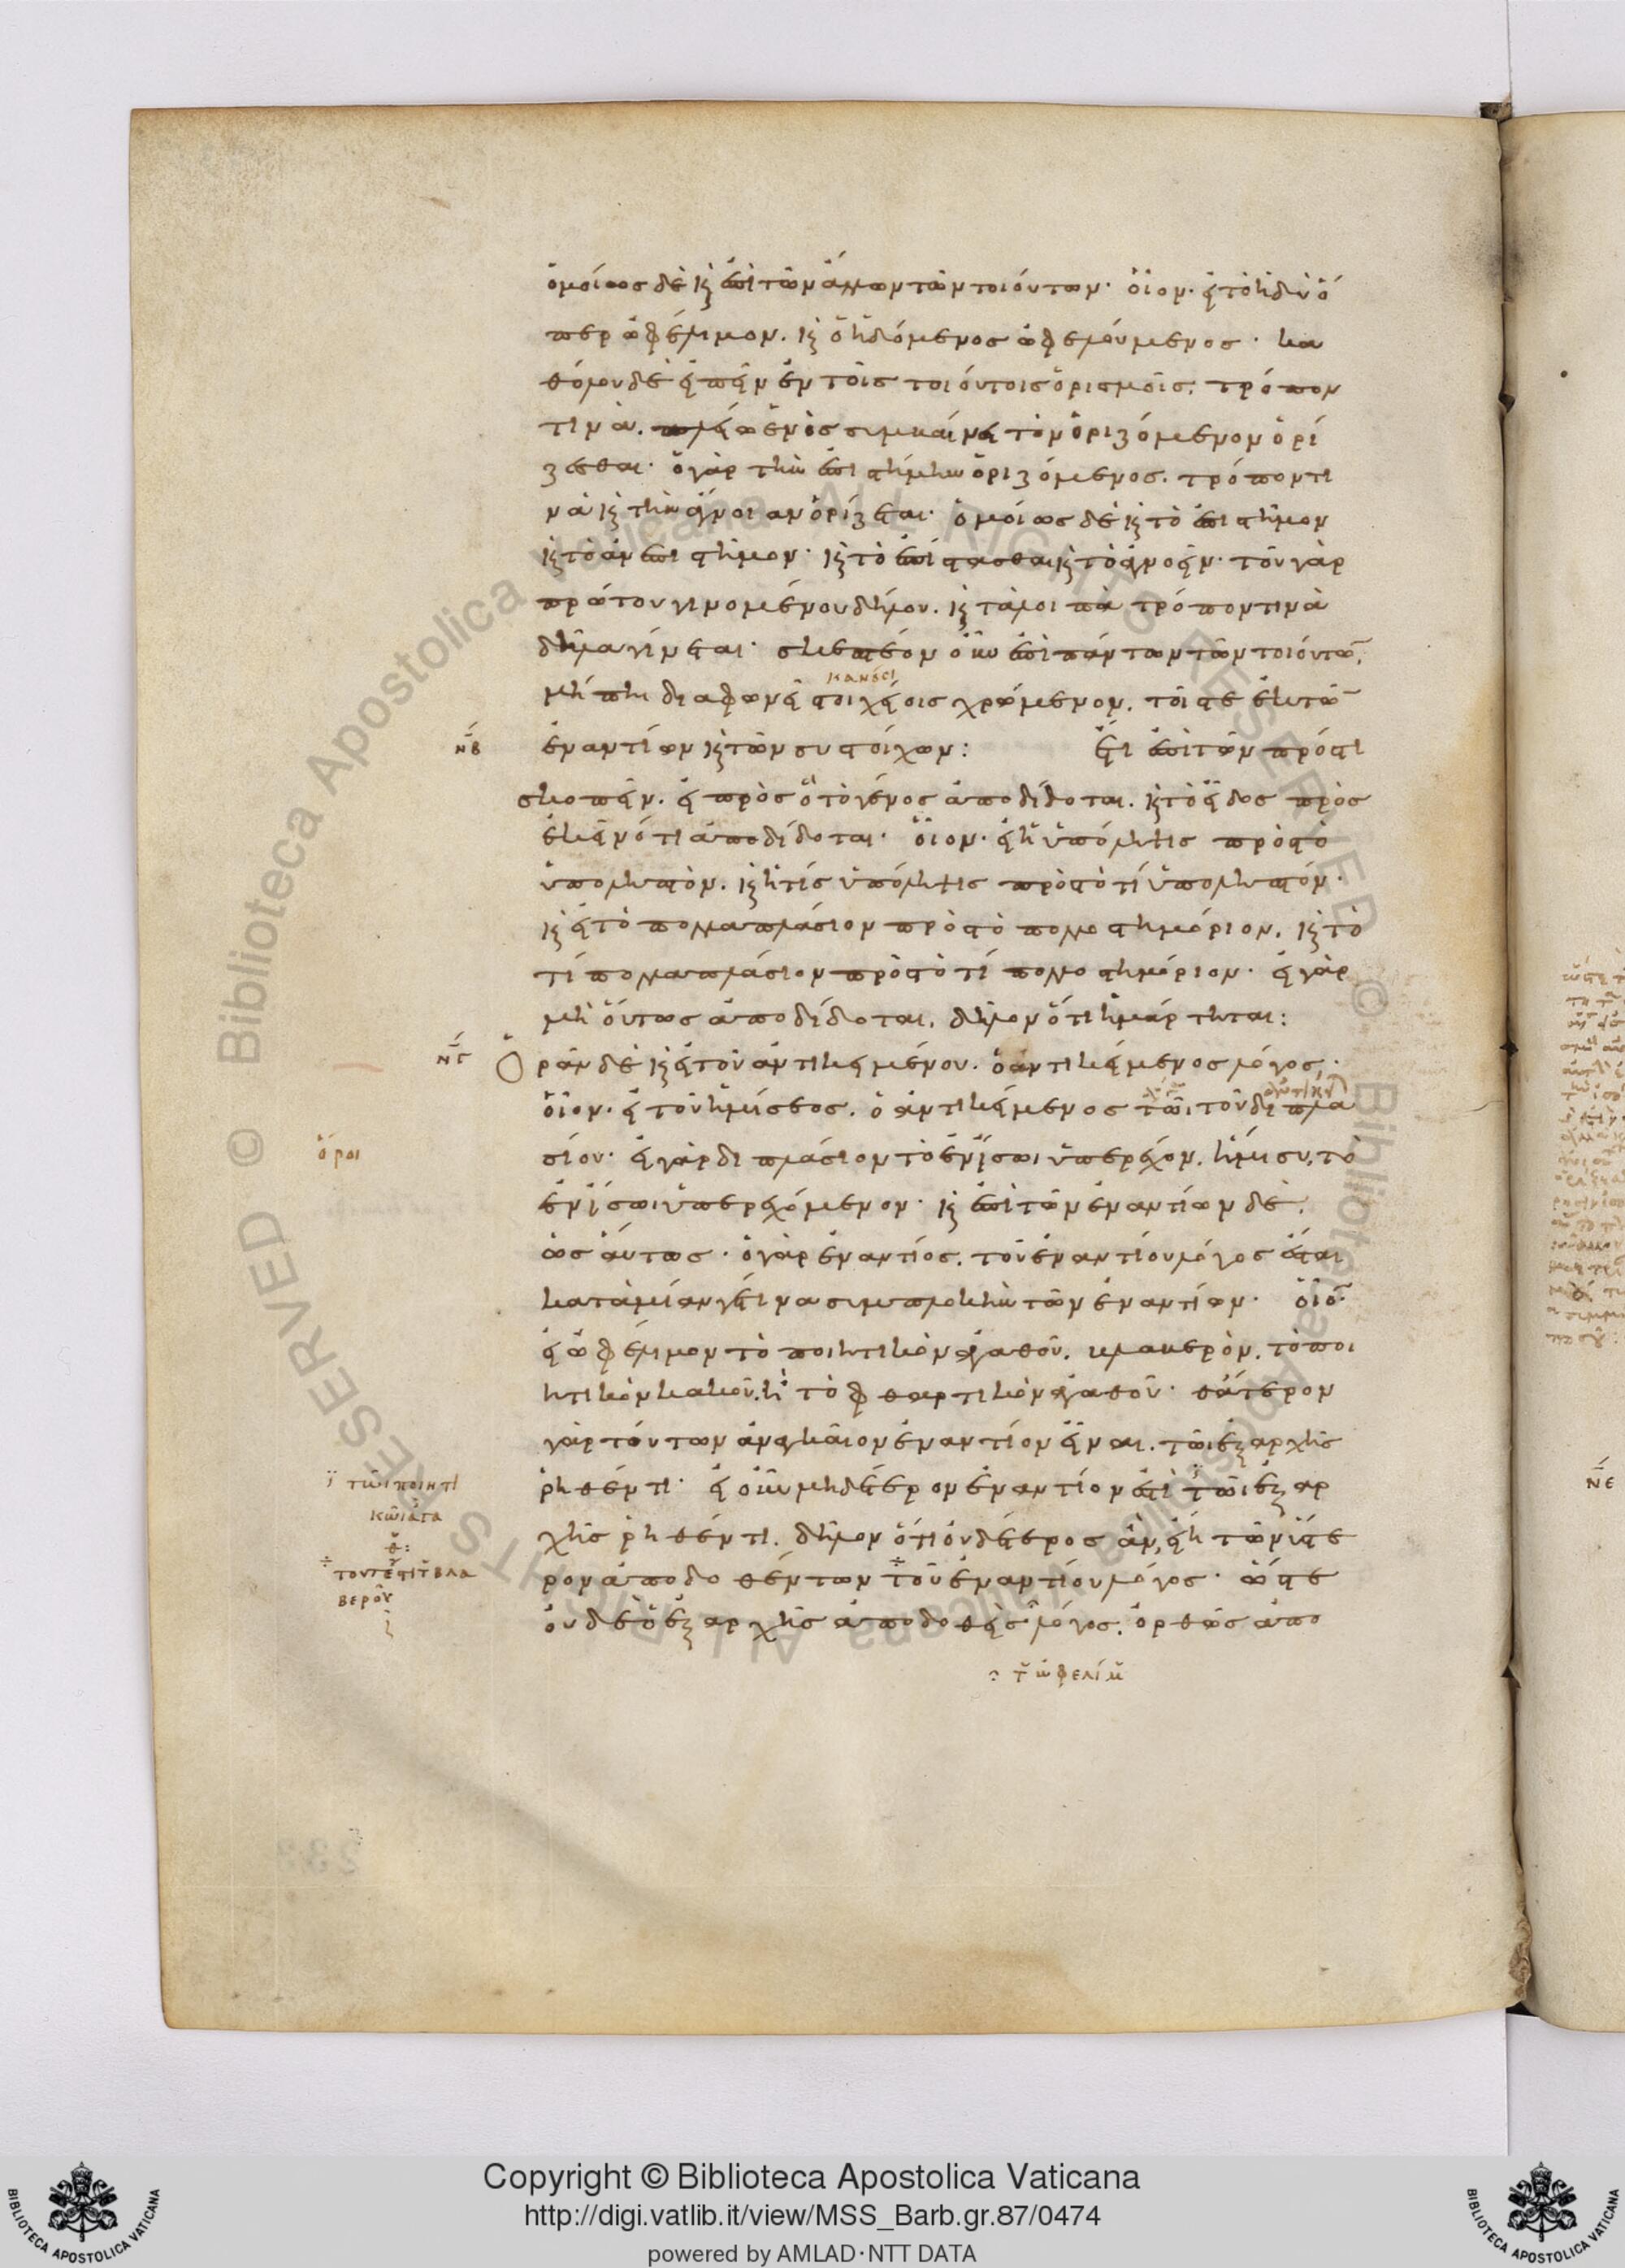 ὁμοίως δὲ κ̀ ἐπὶ τῶν ἄλλων τῶν τοιούτων· οἷον· εἰ τὸ ἡδὺ ὅ
περ ὠφέλιμον. κ̀ ὁ ἡδόμενος ὠφελούμενος· κα
θόλου δὲ εἰπεῖν ἐν τοῖς τοιούτοις ὁρισμοῖς, τρόπον
τινὰ. πλείω ἑνὸς συμβαίνει τὸν ὁριζόμενον ὁρί
ζεσθαι· ὁ γὰρ τὴν ἐπιστήμην ὁριζόμενος. τρόπον τι
νὰ κ̀ τὴν ἄγνοιαν ὁρίζεται· ὁμοίως δὲ κ̀ τὸ ἐπιστῆμον
κ̀ τὸ ἀνεπιστῆμον· κ̀ τὸ ἐπίστασθαι κ̀ τὸ ἀγνοεῖν· τοῦ γὰρ
πρώτου γινομένου δήλου. κ̀ τὰ λοιπὰ τρόπον τινὰ
δῆλα γίνεται· σκεπτέον οὖν ἐπὶ πάντων τῶν τοιούτω̅,
μή πη διαφωνεῖ στοιχείοις χρώμενον. τοῖς τε ἐκ τῶ̅
κανόσι
νβ ἐναντίων κ̀ τῶν συστοίχων: ἔτι ἐπὶ τῶν πρός τι
σκοπεῖν. εἰ πρὸς ὃ τὸ γένος ἀποδίδοται. κ̀ τὸ εἶδος πρὸς
ἐκεῖνό τι ἀποδίδοται· οἷον· εἰ ἡ ὑπόληψις πρὸς τὸ
ὑποληπτόν. κ̀ ἡ τὶς ὑπόληψις πρὸς τὸ τὶ ὑποληπτόν·
κ̀ εἰ τὸ πολλαπλάσιον πρὸς τὸ πολλοστημόριον. κ̀ τὸ
τὶ πολλαπλάσιον πρὸς τὸ τὶ πολλοστημόριον· εἰ γὰρ
μὴ οὕτως ἀποδίδοται, δῆλον ὅτι ἡμάρτηται:
νγ Ὁρᾶν δὲ κ̀ εἰ τοῦ ἀντικειμένου. ὁ ἀντικείμενος λόγος,·
οἷον· εἰ τοῦ ἡμίσεος. ὁ ἀντικείμενος τῶι τοῦ διπλα
ὅροι
σίου· εἰ γὰρ διπλάσιον τὸ ἐν ἴσωι ὑπερέχον, ἥμισυ, τὸ
ἐν ἴσωι ὑπερεχόμενον· κ̀ ἐπὶ τῶν ἐναντίων δὲ,
ὡσαύτως· ὁ γὰρ ἐναντίος. τοῦ ἐναντίου λόγος ἔσται
κατὰ μίαν γέ τινα συμπλοκὴν τῶν ἐναντίων· οἷο̅·
εἰ ὠφέλιμον τὸ ποιητικὸν ἀγαθοῦ. βλαβερὸν. τὸ ποι
ητικὸν κακοῦ. ἢ τὸ φθαρτικὸν ἀγαθοῦ· θάτερον
γὰρ τούτων ἀναγκαῖον ἐναντίον εἶναι. τῶι ἐξ αρχῆς
ῥηθέντι· εἰ οὖν μηδέτερον ἐναντίον ἐστὶ τῶι ἐξ αρ
τῶι ποιητι
κῶι ἀγα
θ:
χῆς ῥηθέντι. δῆλον ὅτι οὐδέτερος ἂν, εἴη τῶν ὕστε
ρον ἀποδοθέντων τοῦ ἐναντίου λόγος· ὥστε
÷ τουτέστι τ̅ βλα
βεροῦ
οὐδὲ ὁ ἐξ αρχῆς ἀποδοθεὶς λόγος, ὀρθῶς ἀπο
τ̅ ὠφελίμ̅
ν̅ε
Copyright © Biblioteca Apostolica Vaticana
http://digi.vatlib.it/view/MSS_Barb.gr.87/0474
powered by AMLAD·NTT DATA
BIBLIOTECA APOSTOLICA VATICANA
BIBLIOTECA APOSTOLICA VATICANA
© Biblioteca Apostolica Vaticana ALL RIGHTS RESERVED
© Biblioteca Apostolica Vaticana ALL RIGHTS RESERVED